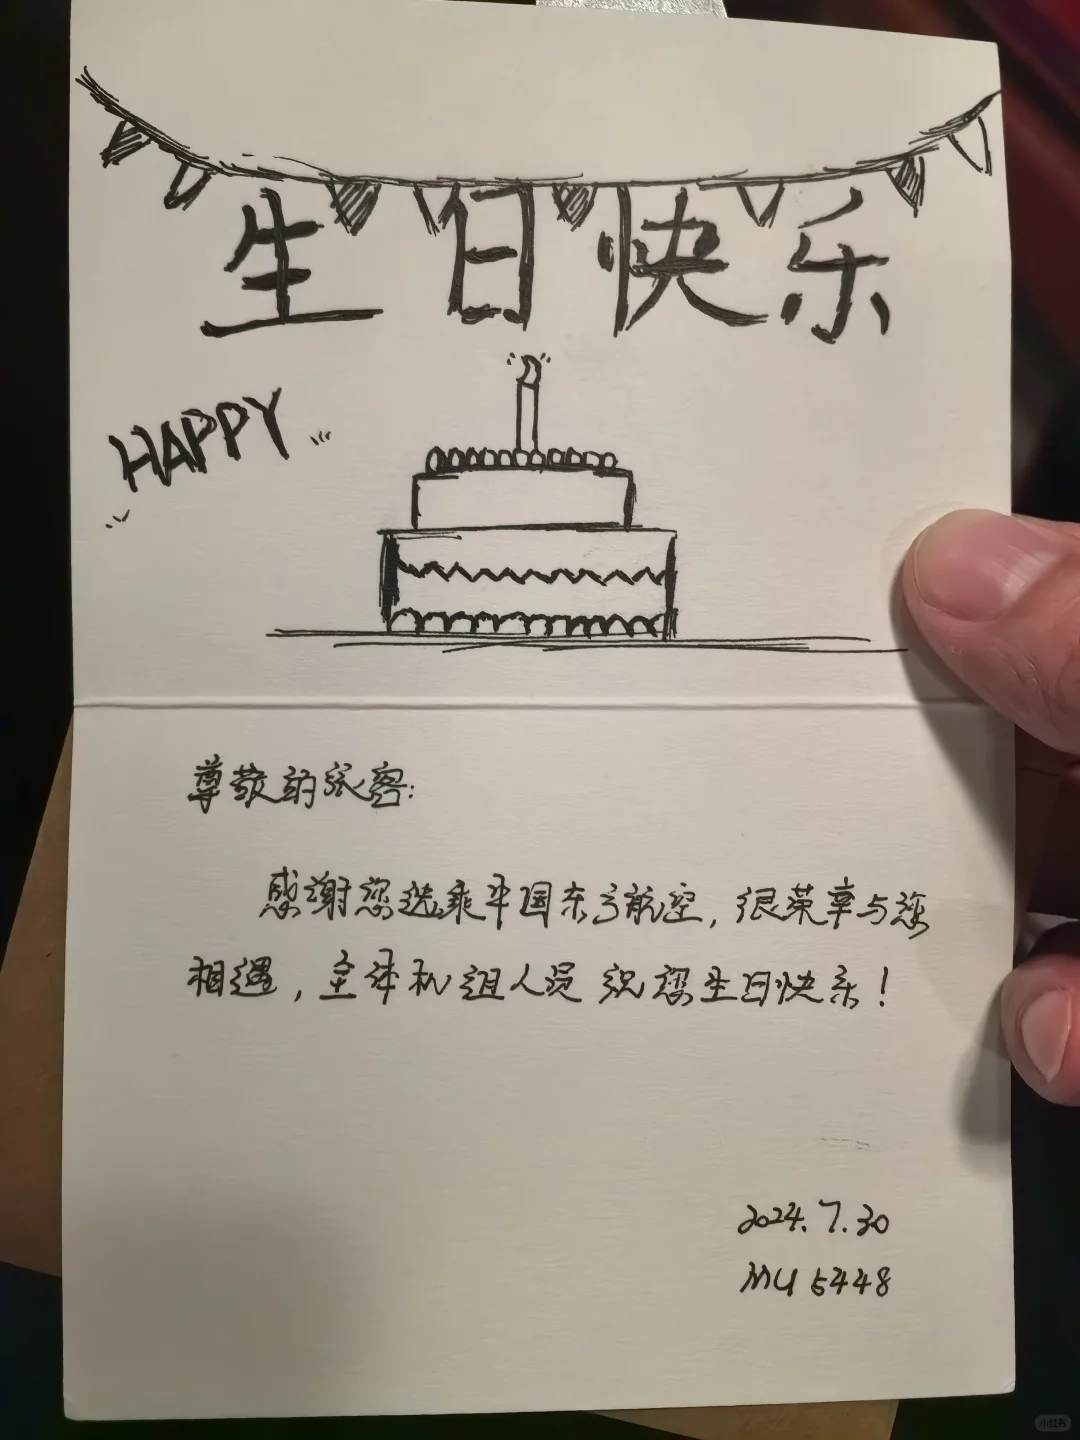 生日快乐
HAPPY
尊敬的旅客:
感谢您选乘中国东方航空,很荣幸与您
相遇,全体机组人员祝您生日快乐!
2024.7.30
MU 5448
小红书